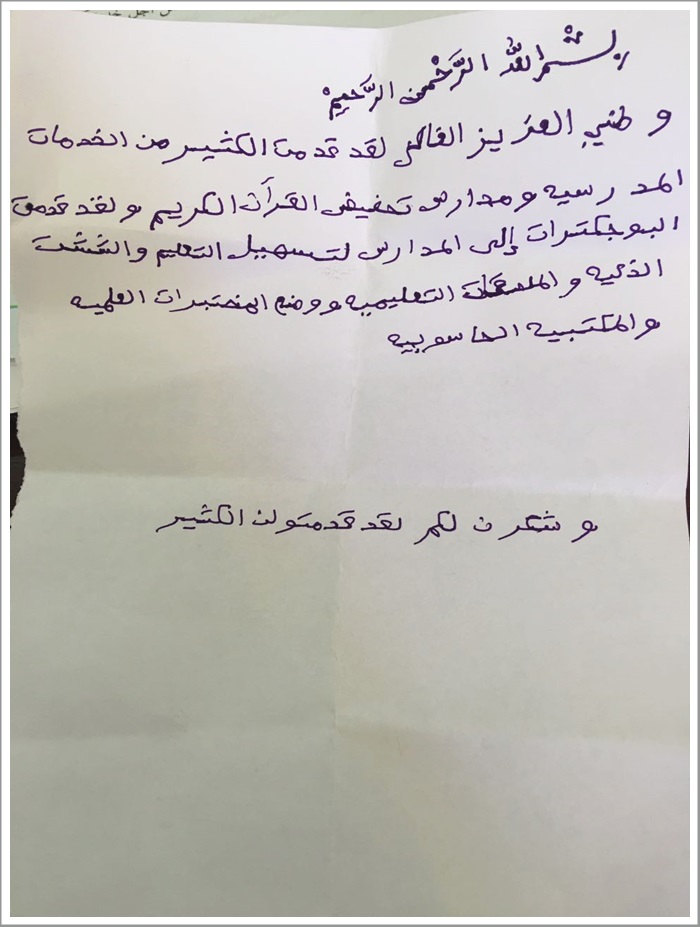 بِسْمِ اللَّهِ الرَّحْمنِ الرَّحِيمْ
وطني العزيز الغالي لقد قدمت الكثير من الخدمات
المدرسيه ومدارس تحفيض القرآن الكريم ولقد قدمت
البوجكترات إلى المدارس لتسهيل التعليم والششت
الذكيه و التعليميه ووضع المختبرات العلميه
والمكتبيه الحاسوبيه
وشكرن لكم لقد قدمتولن الكثير